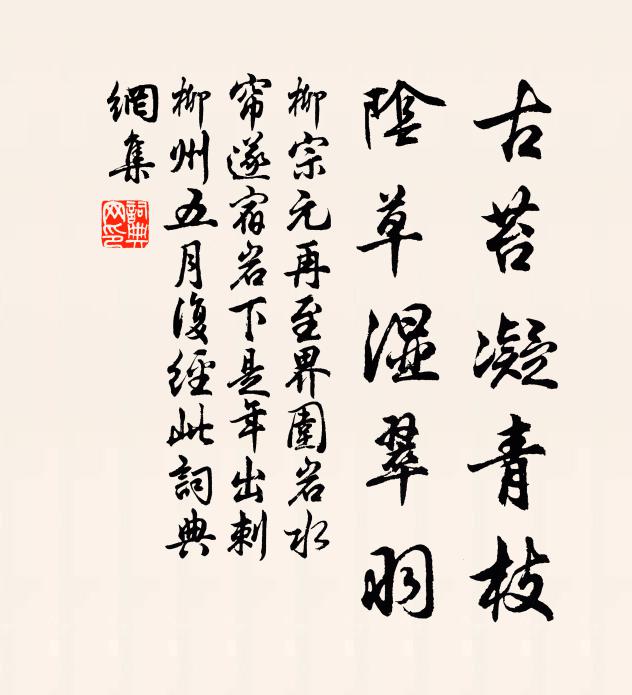 古苔凝青枝
陰草湿翠羽
柳宗元再至界圍岩水
帘遂宿岩下是年出刺
柳州五月復經此詞典
網集
詞典
网印